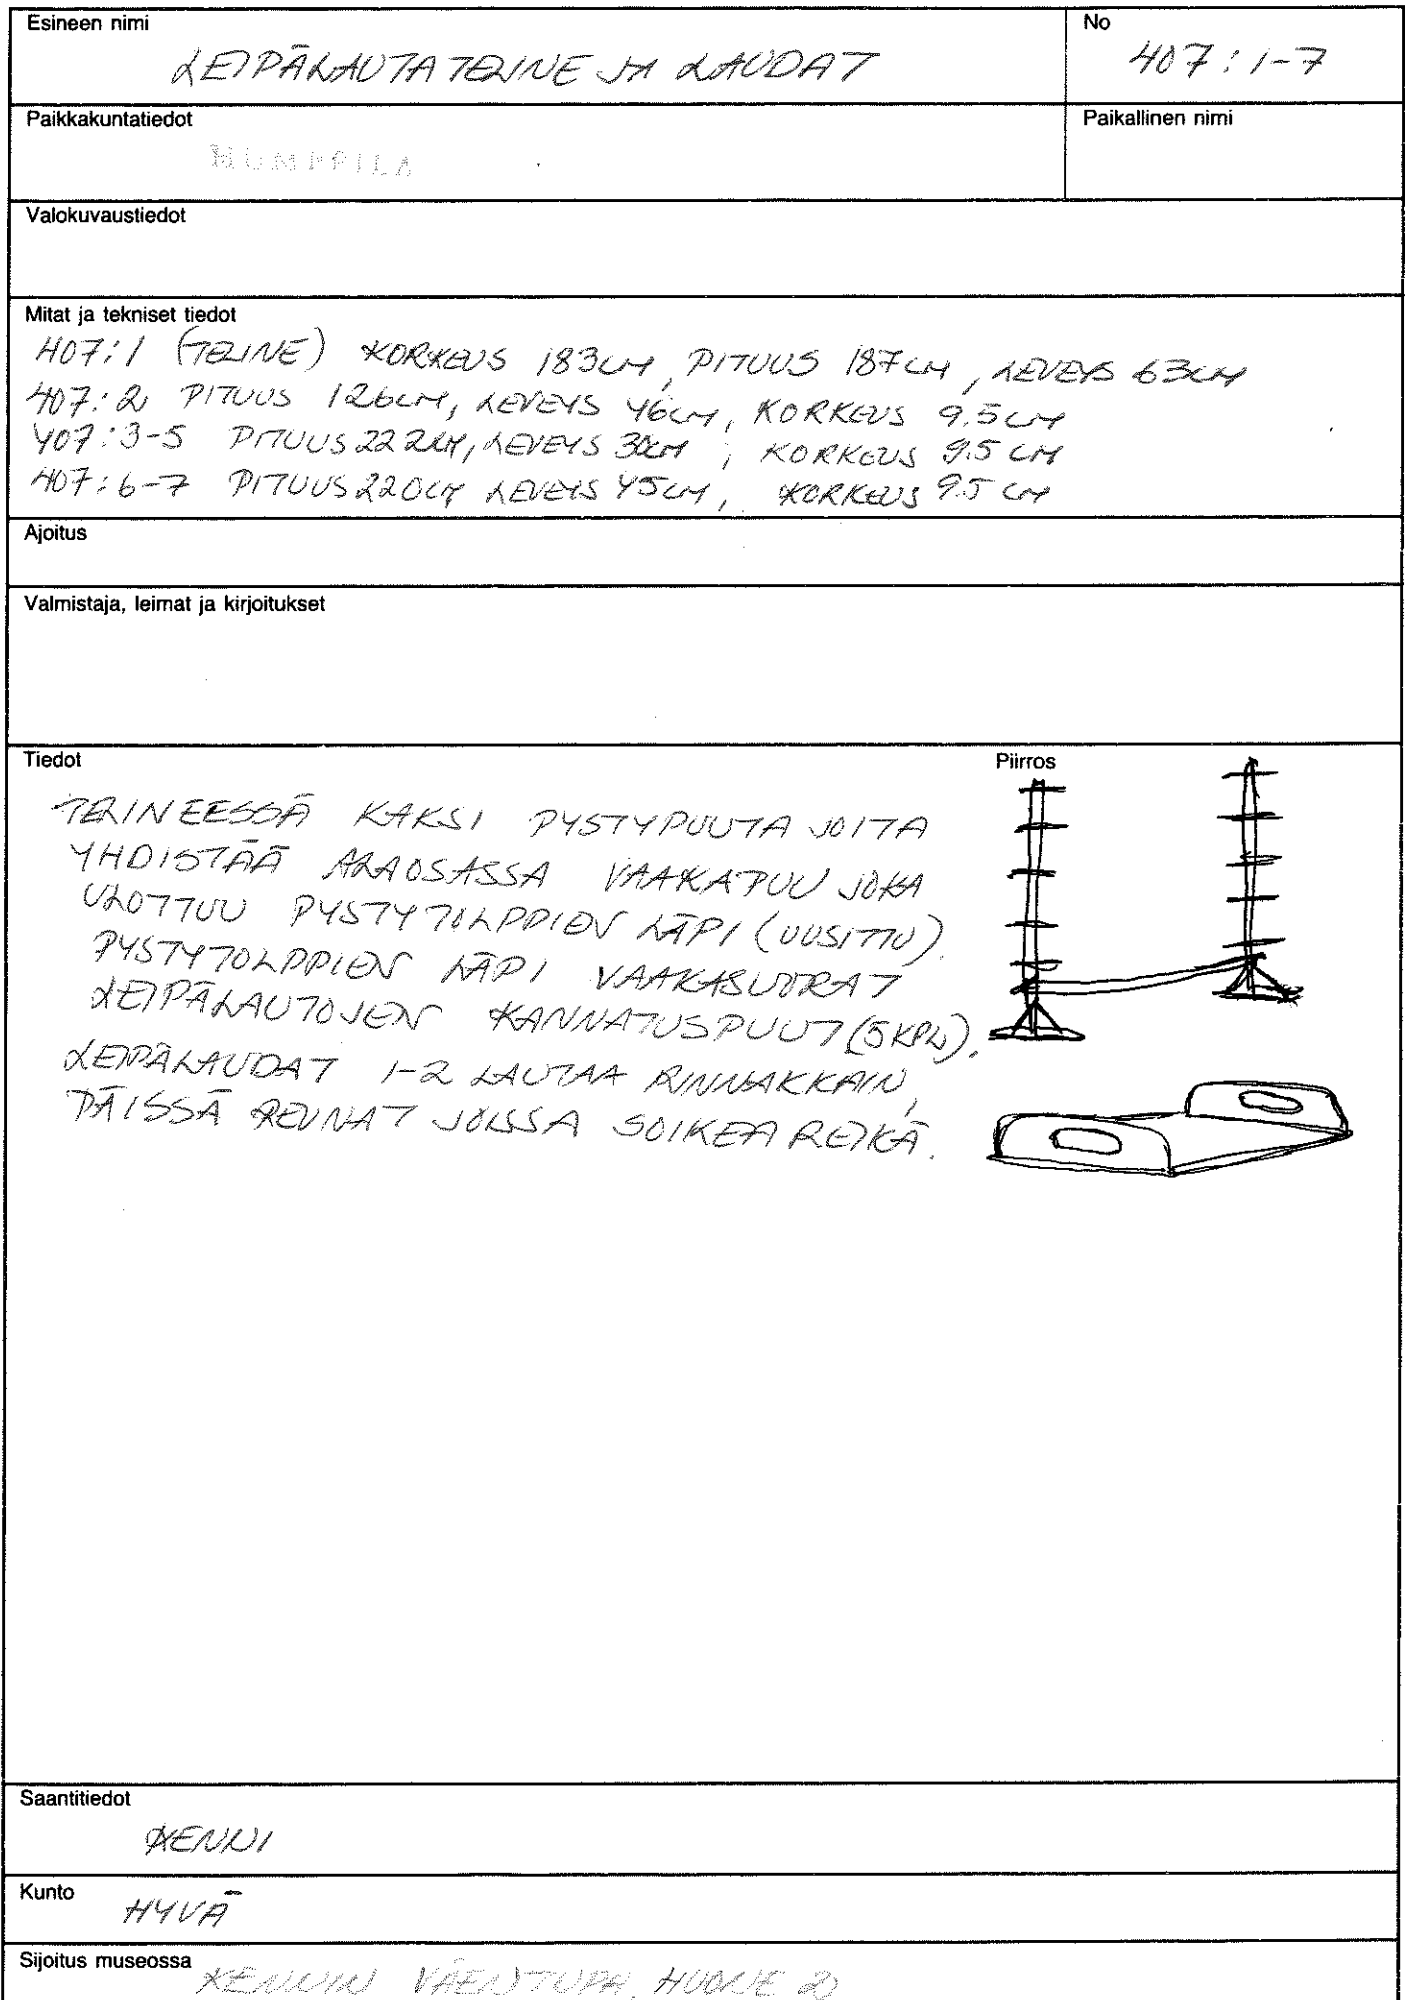 Esineen nimi
LEIPÄLAUTATELINE JA LAUDAT
No
407:1-7
Paikkakuntatiedot
HUMPPILA
Paikallinen nimi
Valokuvaustiedot
Mitat ja tekniset tiedot
407:1 (TELINE) KORKEUS 183CM, PITUUS 187CM, LEVEYS 63CM
407:2 PITUUS 126CM, LEVEYS 46CM, KORKEUS 9.5CM
407:3-5 PITUUS 222CM, LEVEYS 30CM, KORKEUS 9.5 CM
407:6-7 PITUUS 220CM LEVEYS 45CM, KORKEUS 9.5 CM
Ajoitus
Valmistaja, leimat ja kirjoitukset
Tiedot
Piirros
TELINEESSÄ KAKSI PYSTYPUUTA JOITA
YHDISTÄÄ ALAOSASSA VAAKAPUU JOKA
ULOTTUU PYSTYTOLPPIEN LÄPI (UUSITTU).
PYSTYTOLPPIEN LÄPI VAAKASUORAT
LEIPÄLAUTOJEN KANNATUSPUUT (5KPL).
LEIPÄLAUDAT 1-2 LAUTAA RINNAKKAIN,
PÄISSÄ REUNAT JOISSA SOIKEA REIKÄ.
Saantitiedot
KENNI
Kunto
HYVÄ
Sijoitus museossa
KENNIN VÄENTUPA, HUONE 2